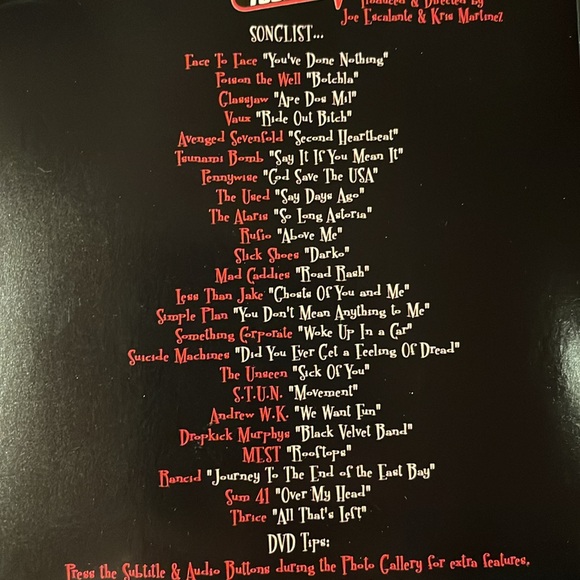 Produced & Directed by
Joe Escalante & Kris Martinez
SONGLIST...
Face To Face "You've Done Nothing"
Poison the Well "Botchla"
Glassjaw "Ape Dos Mil"
Vaux "Ride Out Bitch"
Avenged Sevenfold "Second Heartbeat"
Tsunami Bomb "Say It If You Mean It"
Pennywise "God Save The USA"
The Used "Say Days Ago"
The Ataris "So Long Astoria"
Rufio "Above Me"
Slick Shoes "Darko"
Mad Caddies "Road Rash"
Less Than Jake "Ghosts Of You and Me"
Simple Plan "You Don't Mean Anything to Me"
Something Corporate "Woke Up In a Car"
Suicide Machines "Did You Ever Get a Feeling Of Dread"
The Unseen "Sick Of You"
S.T.U.N. "Movement"
Andrew W.K. "We Want Fun"
Dropkick Murphys "Black Velvet Band"
MEST "Rooftops"
Rancid "Journey To The End of the East Bay"
Sum 41 "Over My Head"
Thrice "All That's Left"
DVD Tips:
Press the Subtitle & Audio Buttons during the Photo Gallery for extra features.